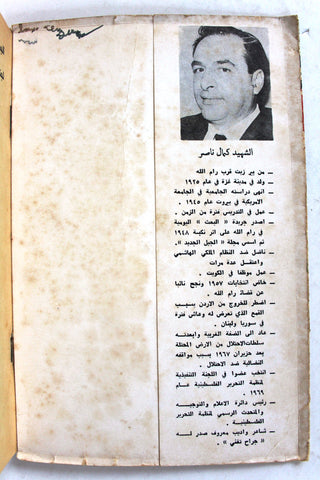 الشهيد كمال ناصر
ــ من بير زيت قرب رام الله
ــ ولد في مدينة غزة في عام ١٩٢٥
ــ انهى دراسته الجامعية في الجامعة
الامريكية في بيروت عام ١٩٤٥ .
ــ عمل في التدريس فترة من الزمن .
ــ اصدر جريدة « البعث » اليومية
في رام الله على اثر نكبة ١٩٤٨
ثم اسس مجلة « الجيل الجديد » .
ــ ناضل ضد النظام الملكي الهاشمي
واعتقل عدة مرات
ــ عمل موظفا في الكويت .
ــ خاض انتخابات ١٩٥٧ ونجح نائبا
عن قضاء رام الله .
ــ اضطر للخروج من الاردن بسبب
القمع الذي تعرض له وعاش فترة
في سوريا ولبنان .
ــ عاد الى الضفة الغربية وابعدته
سلطات الاحتلال من الارض المحتلة
بعد حزيران ١٩٦٧ بسبب مواقفه
النضالية ضد الاحتلال .
ــ انتخب عضوا في اللجنة التنفيذية
لمنظمة التحرير الفلسطينية عام
١٩٦٩ .
ــ رئيس دائرة الاعلام والتوجيه
والمتحدث الرسمي لمنظمة التحرير
الفلسطينية .
ــ شاعر واديب معروف صدر له
« جراح تغني » .